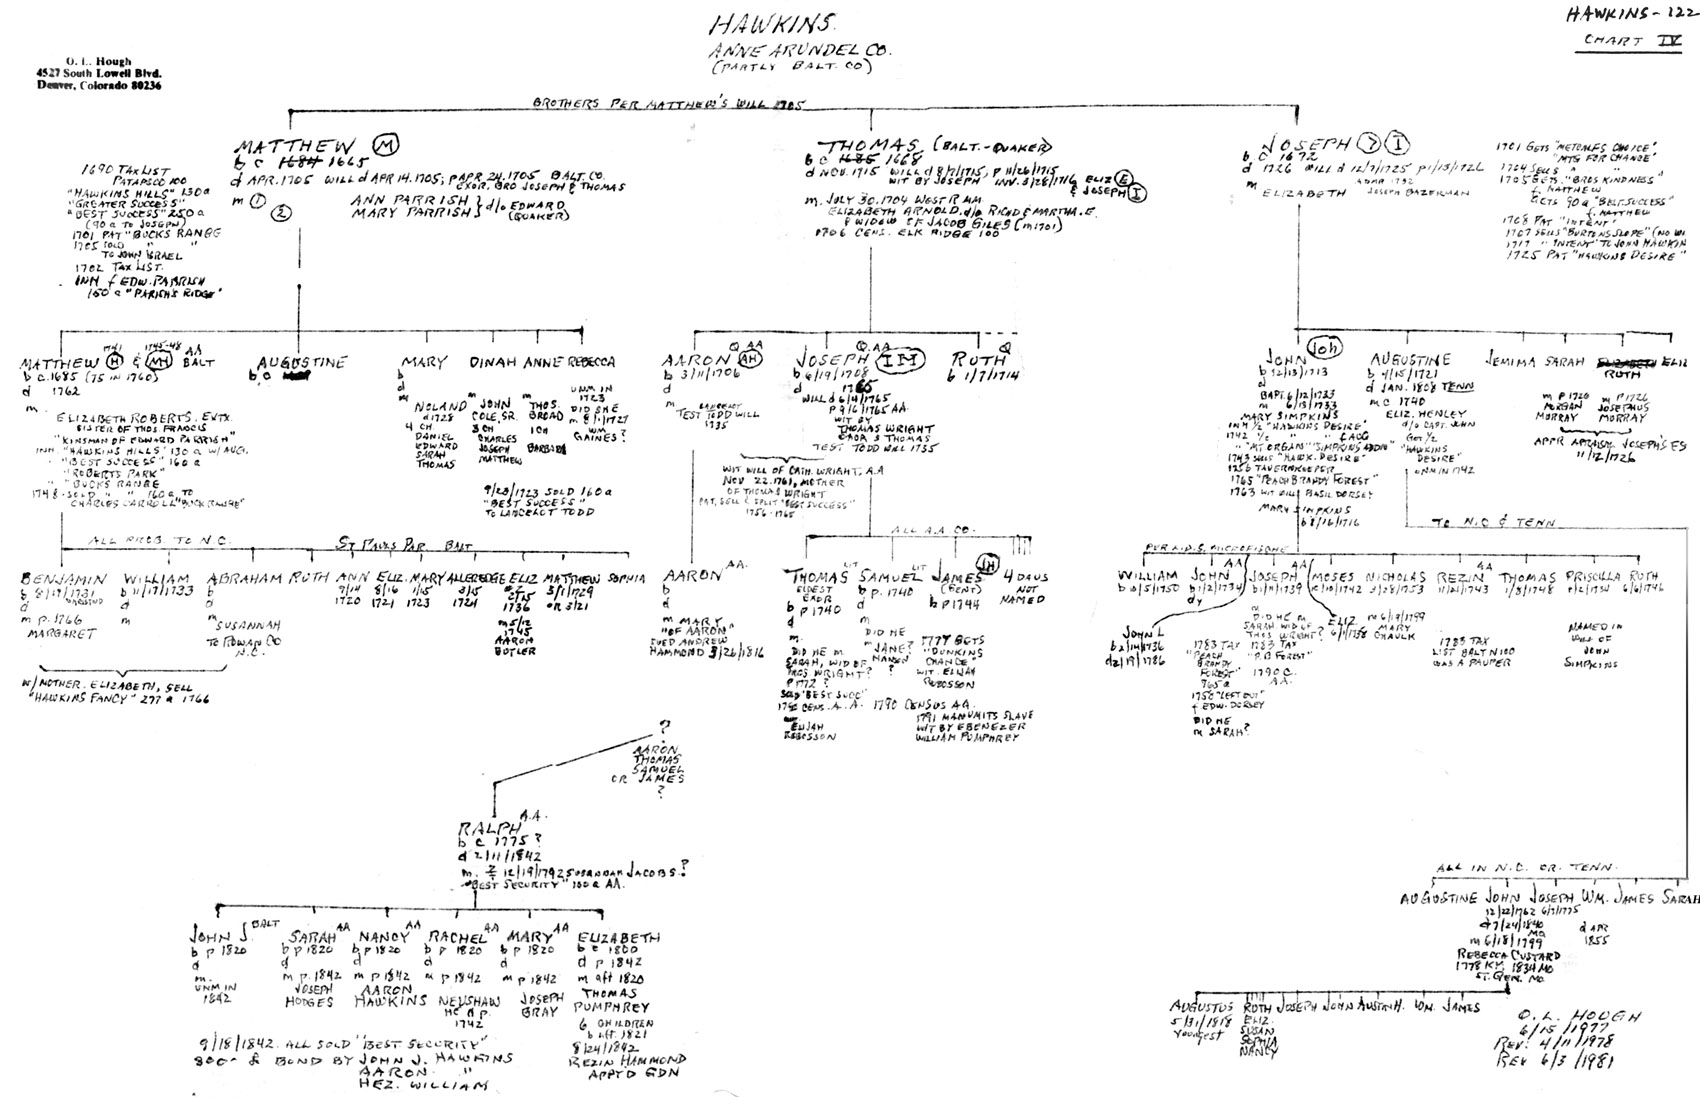 HAWKINS
ANNE ARUNDEL CO.
(PARTLY BALT. CO)
HAWKINS - 122
CHART IV
O. L. Hough
4527 South Lowell Blvd.
Denver, Colorado 80236
BROTHERS PER MATTHEW'S WILL 1705
MATTHEW (M)
b c 1684 1665
d APR. 1705 WILL d APR 14. 1705; P APR 24. 1705 BALT. CO.
EXOR. BRO JOSEPH & THOMAS
m (1) ANN PARRISH } d/o EDWARD
(2) MARY PARRISH } (QUAKER)
1690 TAX LIST
PATAPSCO 100
"HAWKINS HILLS" 130 a
"GREATER SUCCESS"
"BEST SUCCESS" 250 a
(90 a TO JOSEPH)
1701 PAT "BUCKS RANGE
1705 SOLD " "
TO JOHN ISRAEL
1702 TAX LIST.
INH f EDW. PARRISH
150 a "PARISH'S RIDGE"
THOMAS (BALT. - QUAKER)
b c 1685 1668
d NOV. 1715 WILL d 8/7/1715, P 11/26/1715
WIT BY JOSEPH INV. 3/28/1716 & ELIZ (E)
& JOSEPH (I)
m. JULY 30, 1704 WEST R MM
ELIZABETH ARNOLD d/o RICHD & MARTHA. E.
& WIDOW OF JACOB GILES (m 1701)
1706 CENS. ELK RIDGE 100
JOSEPH (7) (I)
b c 1672
d 1726 WILL d 12/7/1725 P 1/13/1726
m ELIZABETH JOSEPH BAZERMAN
1701 GETS "METCALFS CHOICE"
"MTG FOR CHANCE"
1704 SELLS " "
1705 GETS "BROS KINDNESS"
f. MATTHEW
GETS 90 a "BEST SUCCESS"
f. MATTHEW
1708 PAT "INTENT"
1707 SELLS "BURTONS SLOPE" (NO WI
1717 " INTENT TO JOHN HAWKIN
1725 PAT "HAWKINS DESIRE"
MATTHEW (H) 1741 & (MH) 1745-48 AA BALT
b c. 1685 (75 IN 1760)
d 1762
m
ELIZABETH ROBERTS. EXTX.
SISTER OF THOS FRANCIS
"KINSMAN OF EDWARD PARRISH"
INH. "HAWKINS HILLS" 130 a W/ AUG.
" "BEST SUCCESS" 160 a
" "ROBERTS PARK"
" "BUCKS RANGE
1748 - SOLD " " 160 a TO
CHARLES CARROLL "BUCK RANGE"
AUGUSTINE
b. c
MARY
b
d
m
NOLAND
d 1728
4 CH
DANIEL
EDWARD
SARAH
THOMAS
DINAH
m JOHN
COLE, SR.
3 CH
CHARLES
JOSEPH
MATTHEW
ANNE
m THOS.
BROAD
1 CH
BARBARA
REBECCA
UNM IN
1723
DID SHE
m 8/1/1727
WM.
GAINES?
9/23/1723 SOLD 160 a
"BEST SUCCESS"
TO LANCELOT TODD
AARON Q AA (AH)
b 3/11/1706
d
m
TEST TODD WILL
1735
JOSEPH Q. AA (IH)
b 6/19/1708
d 1765
WILL d 6/4/1765
P 9/6/1765 AA.
WIT BY
THOMAS WRIGHT
EXOR S THOMAS
TEST TODD WILL 1735
RUTH Q
b 1/7/1714
WIT WILL OF CATH. WRIGHT, A.A
NOV 22. 1761, MOTHER
OF THOMAS WRIGHT
PAT, SELL & SPLIT "BEST SUCCESS"
1756 - 1765
JOHN (Joh)
b 12/13/1713
d
BAPT. 6/12/1733
m 6/13/1733
MARY SIMPKINS
INH 1/2 "HAWKINS DESIRE"
1742 1/2 " "
"MT ORGAN" SIMPKINS ADDN"
1743 SELLS "HAWK. DESIRE"
1756 TAVERNKEEPER
1765 "PEACH BRANDY FOREST"
1763 WIT WILL BASIL DORSEY
MARY SIMPKINS
b 8/16/1716
AUGUSTINE
b 4/15/1721
d JAN. 1808 TENN
m C 1740
ELIZ. HENLEY
d/o CAPT. JOHN
Got 1/2
"HAWKINS
DESIRE"
UNM IN 1742
JEMIMA SARAH ELIZABETH ELIZ
RUTH
m P 1720
MORGAN
MURRAY
m P 1726
JOSEPHUS
MURRAY
APPR APPRAISM. JOSEPH'S ES
11/12/1726
TO N.C & TENN
ALL PROB. TO N.C.
ST PAULS PAR. BALT
BENJAMIN
b 8/19/1731
d
m p. 1766
MARGARET
WILLIAM
b 11/17/1733
d
m
ABRAHAM
b
d
m SUSANNAH
TO ROWAN CO
N.C.
RUTH
ANN
9/14
1720
ELIZ.
8/16
1721
MARY
1/15
1723
ALLEREDGE
3/15
1724
ELIZ
2/15
1736
m 5/12
1745
AARON
BUTLER
MATTHEW
3/1/1729
OR 3/21
SOPHIA
W/ MOTHER. ELIZABETH, SELL
"HAWKINS FANCY" 277 a 1766
AARON AA.
b
d
m MARY
"OF AARON"
SUED ANDREW
HAMMOND 3/26/1816
ALL A.A CO.
THOMAS LIT
ELDEST
EXOR
b p 1740
d
m.
DID HE m
SARAH, WID OF
THOS. WRIGHT?
P 1772?
SOLD "BEST SUCC"
1790 CENS. A. A.
ELIJAH
ROBOSSON
SAMUEL LIT
b p. 1740
d
m
DID HE
m "JANE?
HANSON
?
JAMES (JH)
(CENT)
b p 1744
1777 GETS
"DUNKINS
CHANCE"
WIT. ELIJAH
ROBOSSON
1790 CENSUS AA.
1791 MANUMITS SLAVE
WIT BY EBENEZER
WILLIAM PUMPHREY
4 DAUS
NOT
NAMED
PER L.D.S. MICROFISCHE
WILLIAM
b 10/5/1750
JOHN AA
b 1/2/1734
dy
JOHN L
b 2/14/1736
d 2/19/1786
1783 TAX
"PEACH
BRANDY
FOREST"
965 a
1750 "LEFT OUT"
f EDW. DORSEY
DID HE
m SARAH?
JOSEPH AA
b 11/19/1739
DID HE m
SARAH WID OF
THOS WRIGHT?
1783 TAX
"P.B FOREST"
1790 C.
AA.
MOSES
b 10/10/1742
ELIZ
6/1/1738
NICHOLAS
b 3/28/1753
m 6/19/1799
MARY
CHAULK
REZIN AA
11/21/1743
1783 TAX
LIST BALT N 100
WAS A PAUPER
THOMAS
1/3/1748
PRISCILLA
b 1/2/1734
NAMED IN
WILL OF
JOHN
SIMPKINS
RUTH
6/6/1746
?
AARON
THOMAS
SAMUEL
OR JAMES
?
RALPH A.A.
b c 1775?
d 2/11/1842
m. 12/19/1792 SUSANNAH JACOBS?
"BEST SECURITY" 100 a AA.
JOHN J. BALT
b p 1820
d
m.
UNM IN
1842
SARAH AA
b p 1820
d
m p. 1842
JOSEPH
HODGES
NANCY AA
b p 1820
d
m p 1842
AARON
HAWKINS
RACHEL AA
b p 1820
d
m p 1842
NEUSHAW
HE d p.
1742
MARY AA
b p 1820
d
m p 1842
JOSEPH
GRAY
ELIZABETH
b c 1800
d p 1842
m aft 1820
THOMAS
PUMPHREY
6 CHILDREN
b aft. 1821
8/24/1842
REZIN HAMMOND
APPT'D GDN
9/18/1842. ALL SOLD "BEST SECURITY"
800 & BOND BY JOHN J. HAWKINS
AARON "
HEZ. WILLIAM
ALL IN N.C. OR. TENN.
AUGUSTINE JOHN JOSEPH WM. JAMES SARAH
12/22/1762 6/7/1775
d 7/24/1840
MO
m 6/18/1799
REBECCA CUSTARD
1778 KY. 1834 MO
ST. GEN. MO
d APR
1855
AUGUSTUS
5/31/1818
youngest
RUTH
ELIZ.
SUSAN
SOPHIA
NANCY
JOSEPH JOHN AUSTIN H. WM. JAMES
O. L. HOUGH
6/15/1977
REV: 4/11/1978
REV 6/3/1981